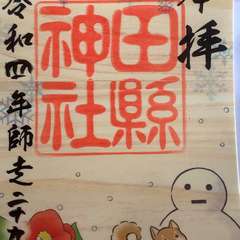 奉拝
田縣
神社
令和四年師走二十九